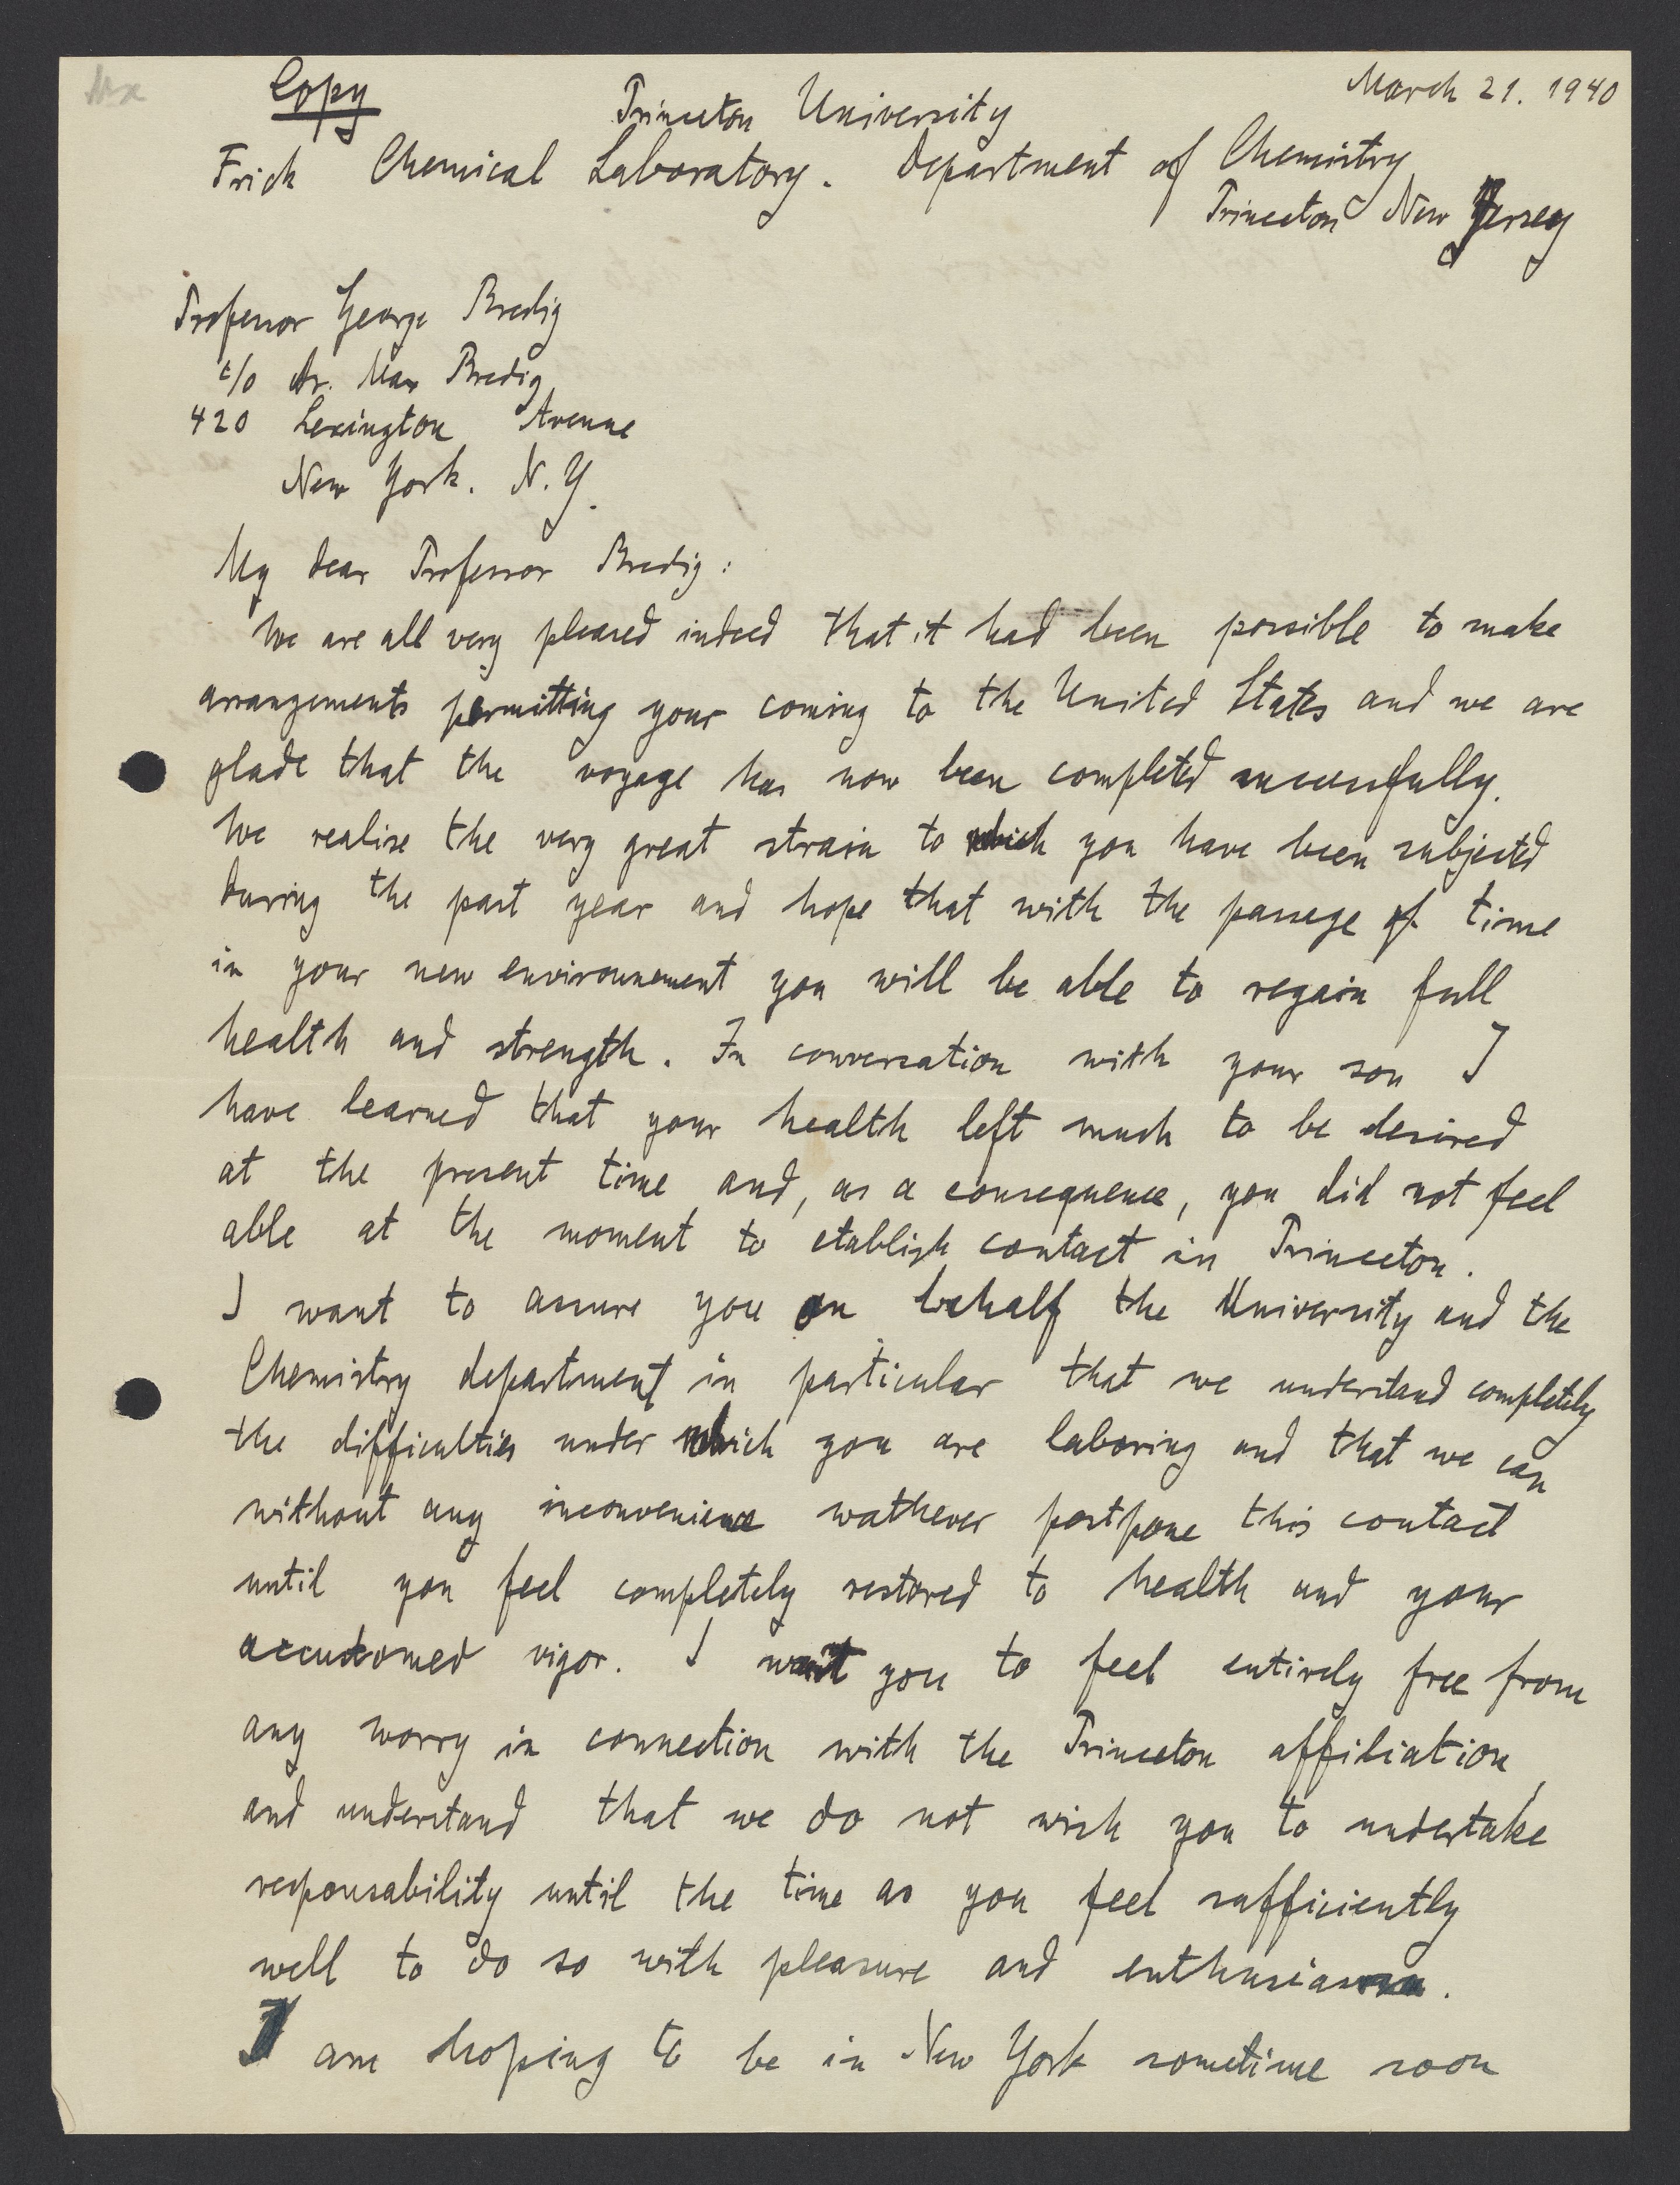 Copy
March 21. 1940
Princeton University
Frick Chemical Laboratory. Department of Chemistry
Princeton New Jersey
Professor George Bredig
c/o Dr. Max Bredig
420 Lexington Avenue
New York. N.Y.
My dear Professor Bredig:
We are all very pleased indeed that it had been possible to make
arrangements permitting your coming to the United States and we are
glade that the voyage has now been completed successfully.
We realise the very great strain to which you have been subjected
during the past year and hope that with the passage of time
in your new environnement you will be able to regain full
health and strength. In conversation with your son I
have learned that your health left much to be desired
at the present time and, as a consequence, you did not feel
able at the moment to etablish contact in Princeton.
I want to assure you on behalf the University and the
Chemistry department in particular that we understand completely
the difficulties under which you are laboring and that we can
without any inconvenience wathever postpone this contact
until you feel completely restored to health and your
accustomed vigor. I want you to feel entirely free from
any worry in connection with the Princeton affiliation,
and understand that we do not wish you to undertake
responsability until the time as you feel sufficiently
well to do so with pleasure and enthusiasm.
I am hoping to be in New York sometime soon